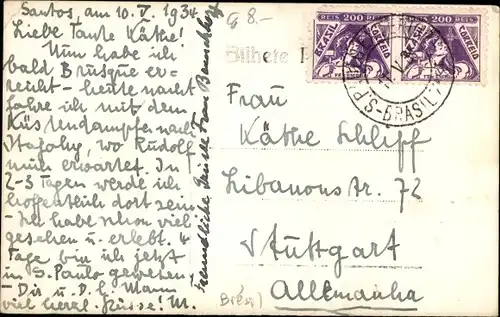 Santos, am 10. V. 1934
Liebe Tante Käthe!
Nun habe ich
bald Brusque er-
reicht – heute nacht
fahre ich mit dem
Küstendampfer nach
Itajahy, wo Rudolf
mich erwartet. In
2-3 Tagen werde ich
hoffentlich dort sein
– Ich habe schon viel
gesehen u. erlebt. 4
Tage bin ich jetzt
in S. Paulo gewesen,
– Dir u. D. l. Mann
viel herzl. Grüsse! M.
Freundliche Grüsse Frau
G 8.-
Bilhete
REIS 200 REIS
BRASIL CORREIO
REIS 200 REIS
BRASIL CORREIO
BRASIL
Frau
Käthe Schliff
Libanonstr. 72
Stuttgart
Allemanha